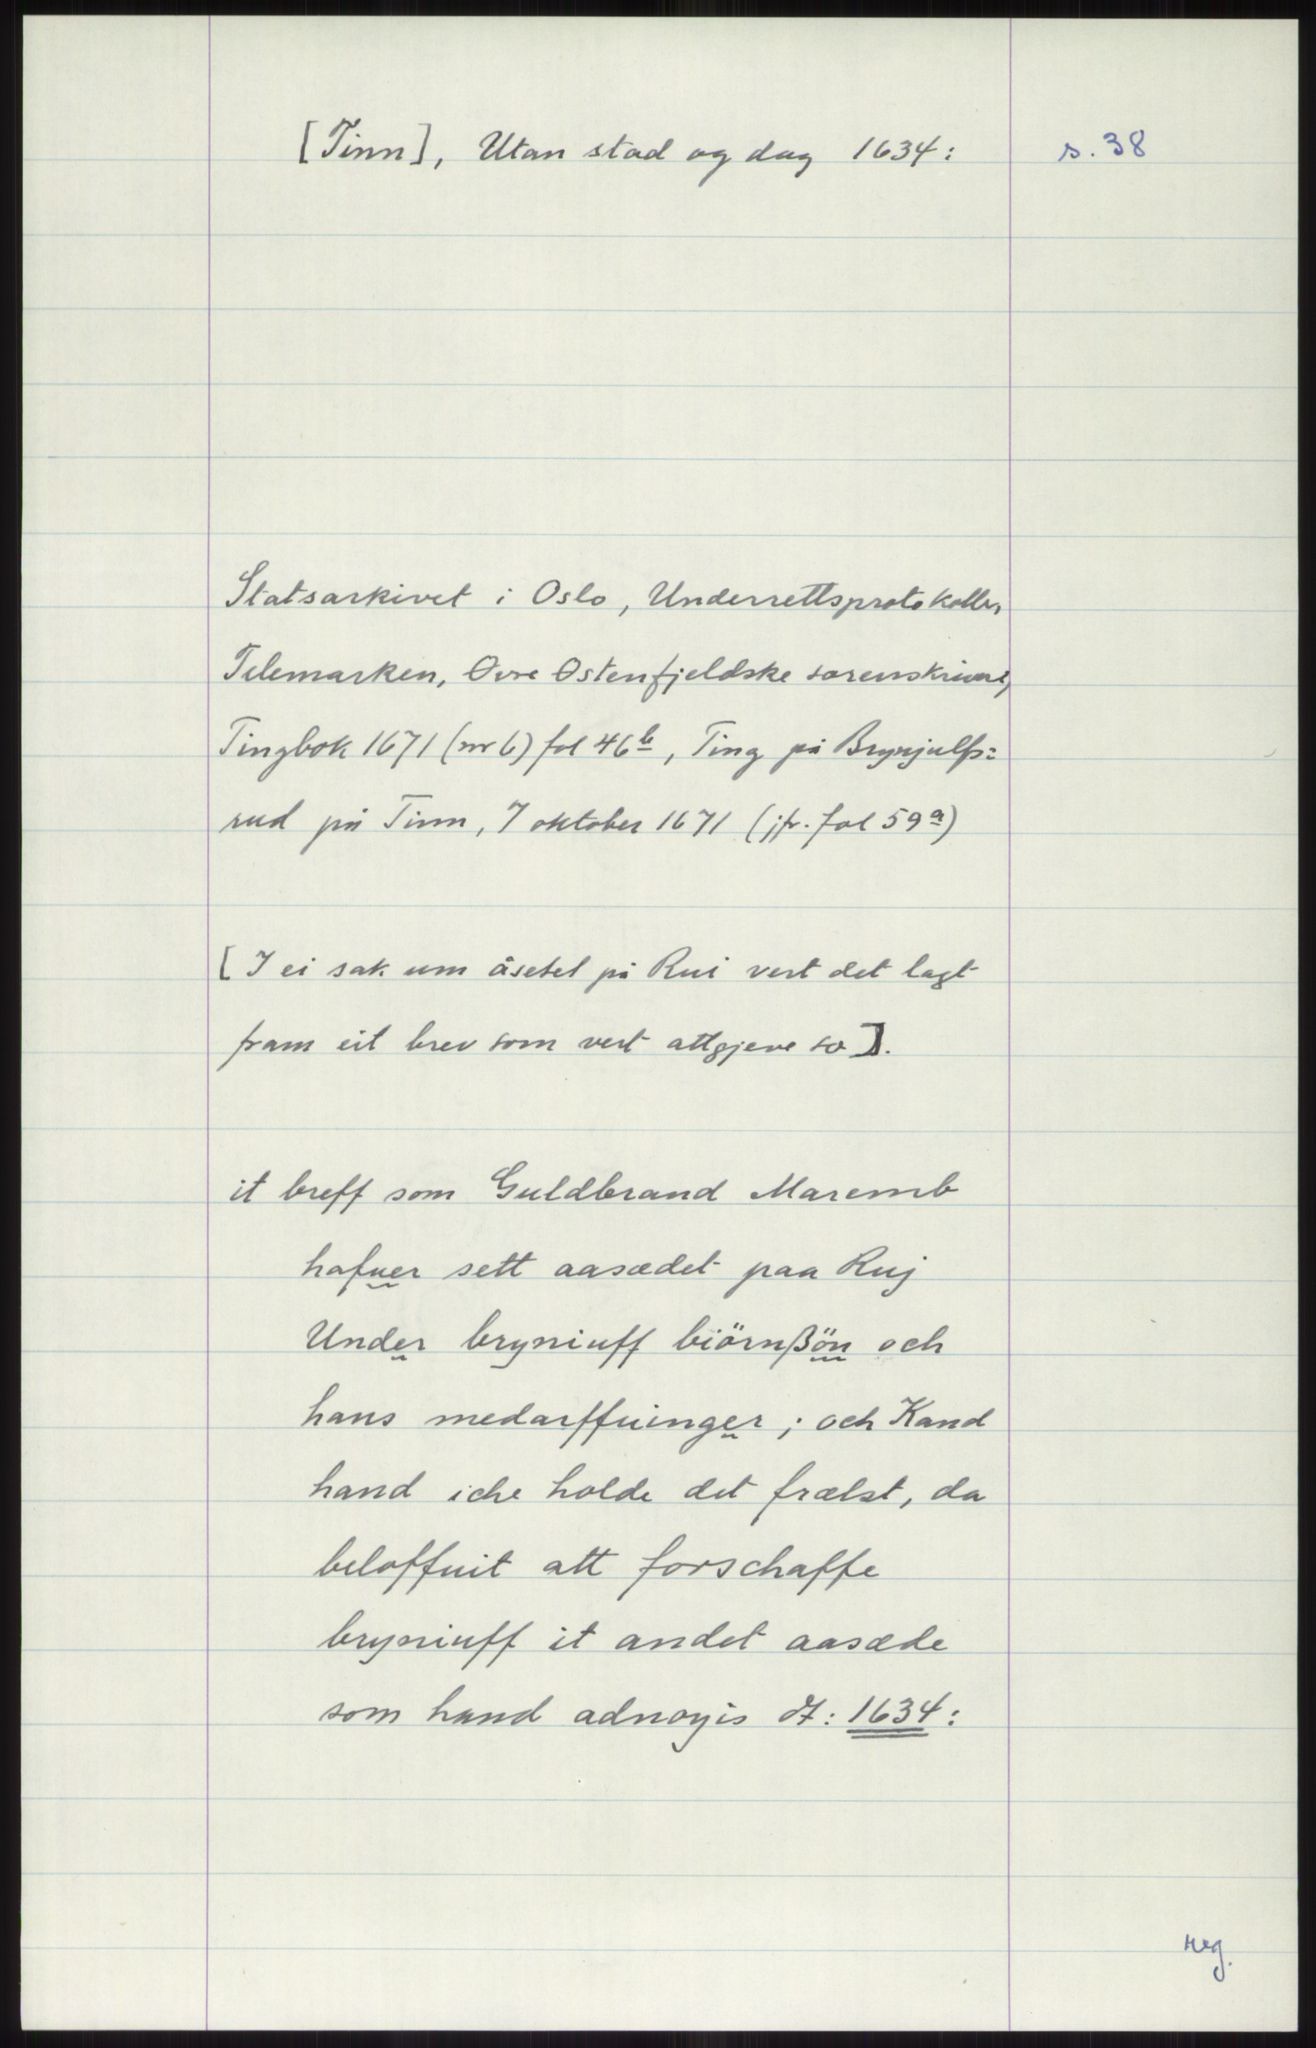 [Tinn], Utan stad og dag 1634: s. 38
Statsarkivet i Oslo, Underrettsprotokoller,
Telemarken, Øvre Østenfjeldske sorenskriveri,
Tingbok 1671 (nr 6) fol 46b, Ting på Brynjulfs=
rud på Tinn, 7 oktober 1671 (jfr. fol 59a)
[I ei sak um åsetet på Rui vert det lagt
fram eit brev som vert attgjeve so].
it breff som Guldbrand Maremb
hafuer sett aasædet paa Ruj
Under bryniuff biörnßön och
hans medarffuinger; och Kand
hand iche holde det frælst, da
beloffuit att forschaffe
bryniuff it andet aasæde
som hand adnøyis : 1634:
reg.